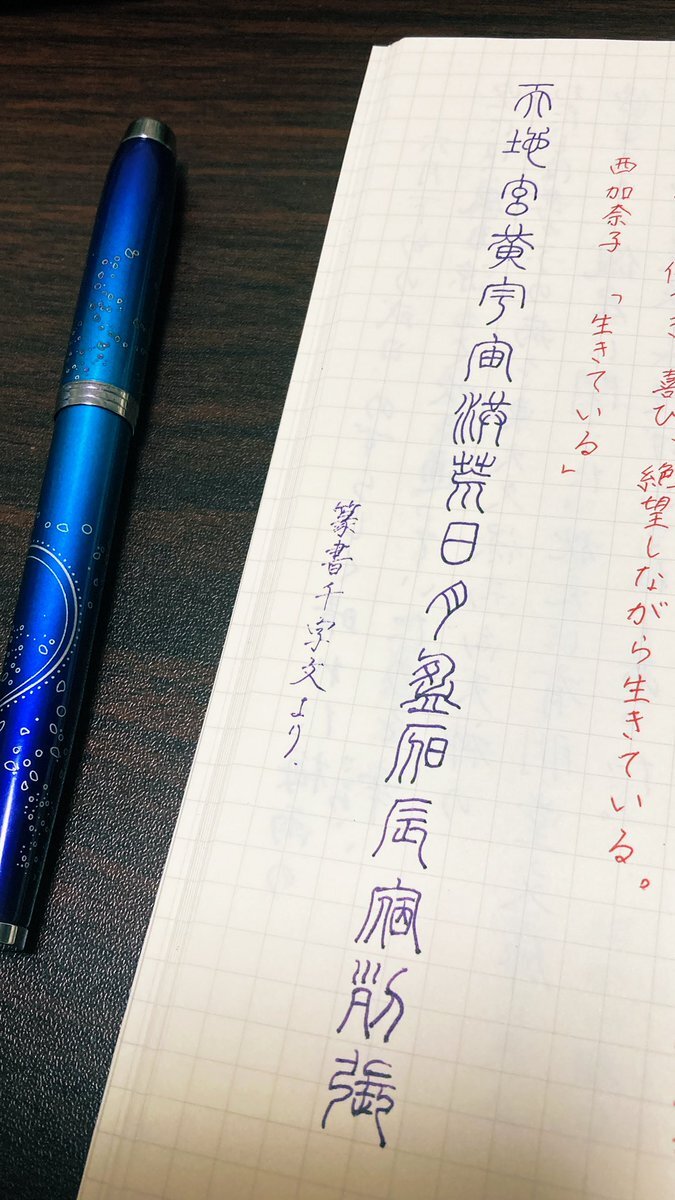 傷つき、喜び、絶望しながら生きている。
西加奈子「生きている」
天地宮黄宇宙洪荒日月盈昃辰宿列張
篆書千字文より.